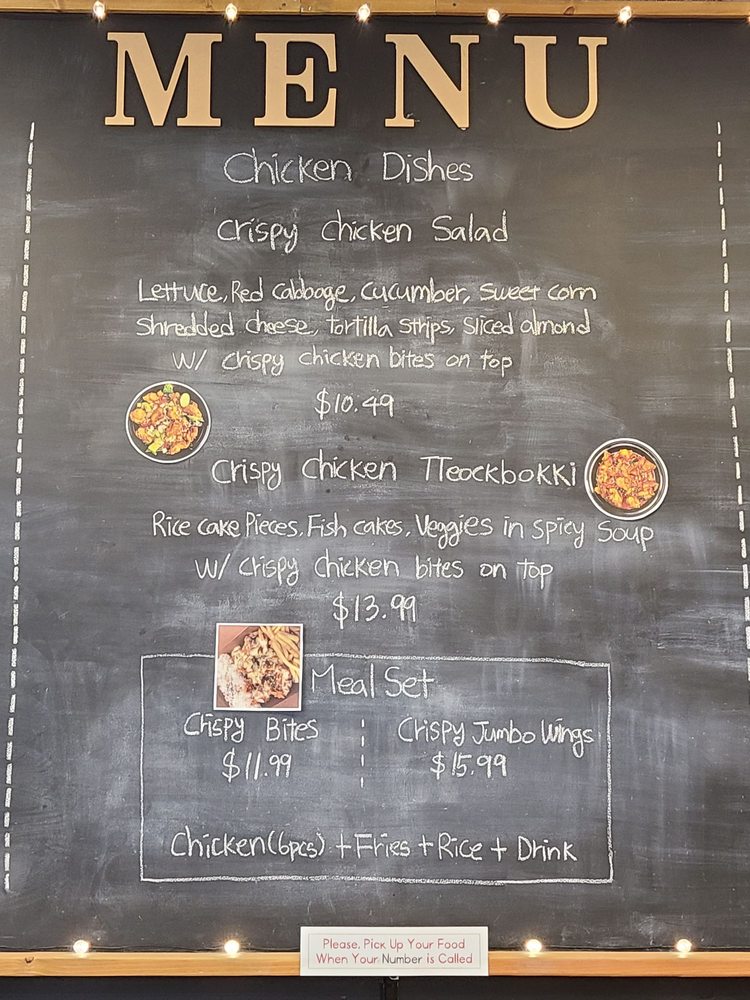 MENU
Chicken Dishes
Crispy Chicken Salad
Lettuce, Red Cabbage, Cucumber, Sweet corn
Shredded cheese, tortilla strips, sliced almond
W/ crispy chicken bites on top
$10.49
Crispy Chicken TTeockbokki
Rice cake Pieces, Fish cakes, Veggies in spicy Soup
W/ crispy chicken bites on top
$13.99
Meal Set
Crispy Bites
$11.99
Crispy Jumbo Wings
$15.99
Chicken(6pcs) + Fries + Rice + Drink
Please, Pick Up Your Food
When Your Number is Called